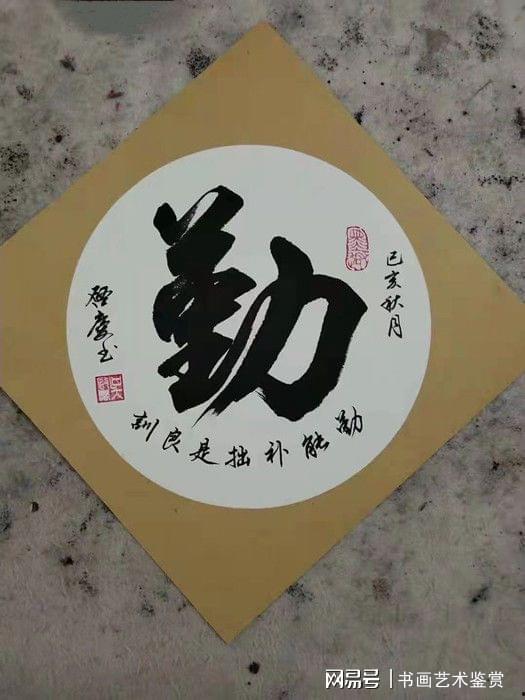 己亥秋月
勤
勤能补拙是良训
慶书
网易号 | 书画艺术鉴赏